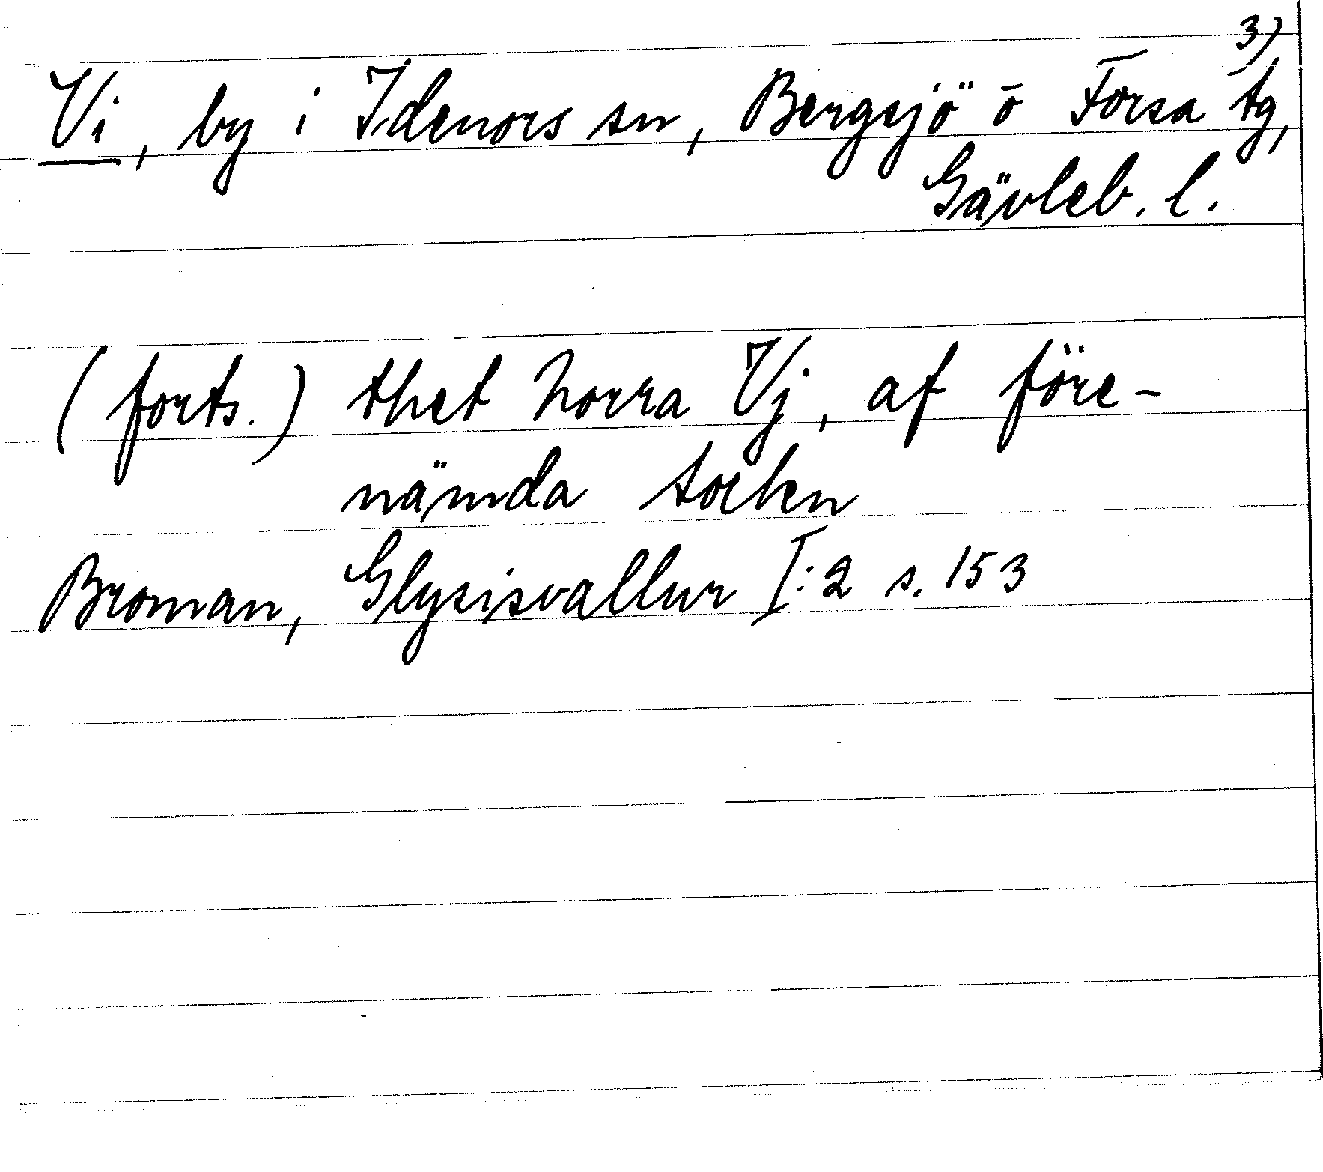 3)
Vi, by i Idenors sn, Bergsjö o Forsa tg,
Gävleb. l.
(forts.) thet norra Vj, af före-
nämda socken
Broman, Glysisvallur I:2 s. 153